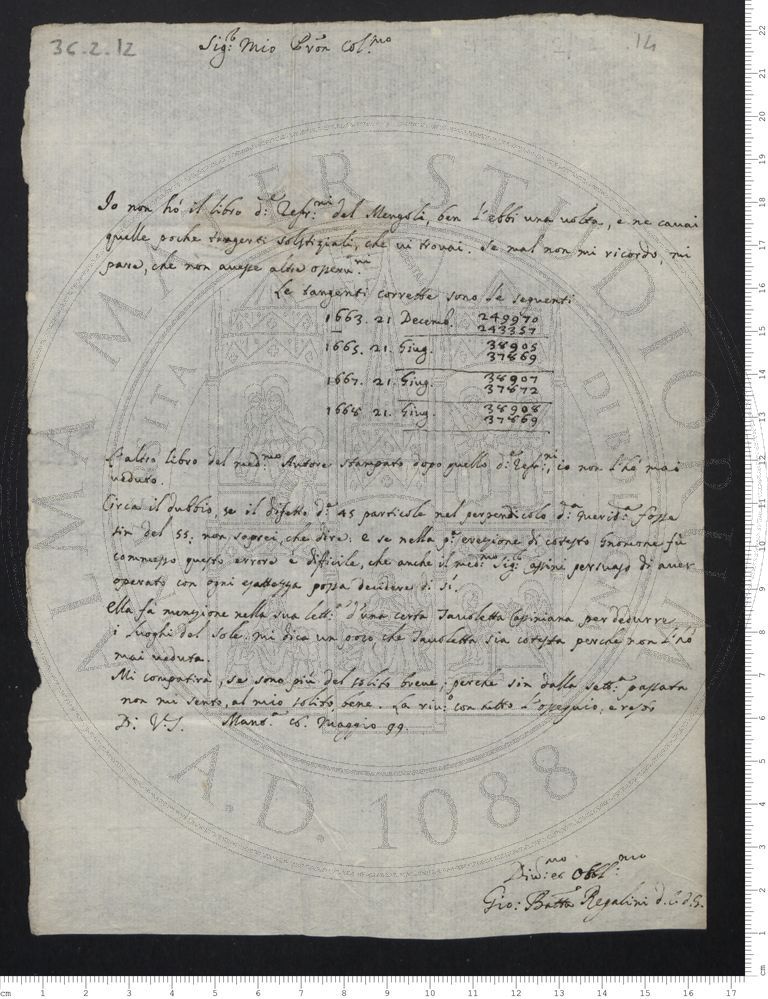 36.2.12
14
Sig:r Mio Pron Col:mo
Io non hò il libro d:e Refr:ni del Mengoli, ben l'ebbi una volta, e ne cavai
quelle poche tangenti solstiziali, che vi trovai. Se mal non mi ricordo, mi
pare, che non avesse altre osserv:ni
Le tangenti corrette sono le seguenti
1663. 21. Decemb. 249970
243357
1665. 21. Giug. 38905
37869
1667. 21. Giug. 38907
37872
1668 21. Giug. 38908
37869
L'altro libro del med:mo Autore stampato dopo quello d:e Refr:ni, io non l'hò mai
veduto.
Circa il dubbio, se il difetto d:e 45 particole nel perpendicolo d:a merid:a fosse
sin del 55: non saprei, che dire: e se nella p:a erezione di cotesto Gnomone fù
commesso questo errore è difficile, che anche il med:mo Sig:r Cassini persuaso di aver
operato con ogni esattezza possa decidere di sì.
Ella fa menzione nella sua lett:a d'una certa Tavoletta Cassiniana per dedurre
i luoghi del Sole: mi dica un poco, che Tavoletta sia cotesta perche non l'hò
mai veduta.
Mi compatirà, se sono più del solito breve; perche sin dalla sett:a passata
non mi sento, al mio solito, bene. La riv:o con tutto l'ossequio, e resto
Di V.S. Mant:a 16. Maggio 99.
Div:mo et Obbl:mo
Gio: Batta Regalini d.C.d.G.
ALMA MATER STUDIORUM
A.D. 1088